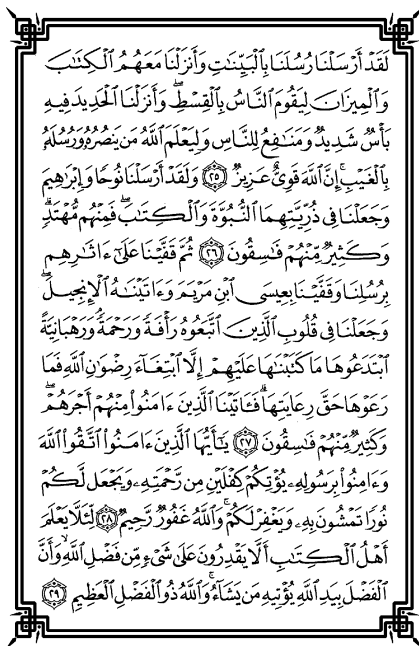 لَقَدْ أَرْسَلْنَا رُسُلَنَا بِالْبَيِّنَاتِ وَأَنزَلْنَا مَعَهُمُ الْكِتَابَ
وَالْمِيزَانَ لِيَقُومَ النَّاسُ بِالْقِسْطِ ۖ وَأَنزَلْنَا الْحَدِيدَ فِيهِ
بَأْسٌ شَدِيدٌ وَمَنَافِعُ لِلنَّاسِ وَلِيَعْلَمَ اللَّهُ مَن يَنصُرُهُ وَرُسُلَهُ
بِالْغَيْبِ ۚ إِنَّ اللَّهَ قَوِيٌّ عَزِيزٌ ٢٥ وَلَقَدْ أَرْسَلْنَا نُوحًا وَإِبْرَاهِيمَ
وَجَعَلْنَا فِي ذُرِّيَّتِهِمَا النُّبُوَّةَ وَالْكِتَابَ ۖ فَمِنْهُم مُّهْتَدٍ ۖ
وَكَثِيرٌ مِّنْهُمْ فَاسِقُونَ ٢٦ ثُمَّ قَفَّيْنَا عَلَىٰ ءَاثَارِهِم
بِرُسُلِنَا وَقَفَّيْنَا بِعِيسَى ابْنِ مَرْيَمَ وَءَاتَيْنَاهُ الْإِنجِيلَ ۖ
وَجَعَلْنَا فِي قُلُوبِ الَّذِينَ اتَّبَعُوهُ رَأْفَةً وَرَحْمَةً وَرَهْبَانِيَّةً
ابْتَدَعُوهَا مَا كَتَبْنَاهَا عَلَيْهِمْ إِلَّا ابْتِغَاءَ رِضْوَانِ اللَّهِ فَمَا
رَعَوْهَا حَقَّ رِعَايَتِهَا ۖ فَـَٔاتَيْنَا الَّذِينَ ءَامَنُوا مِنْهُمْ أَجْرَهُمْ ۖ
وَكَثِيرٌ مِّنْهُمْ فَاسِقُونَ ٢٧ يَا أَيُّهَا الَّذِينَ ءَامَنُوا اتَّقُوا اللَّهَ
وَءَامِنُوا بِرَسُولِهِ يُؤْتِكُمْ كِفْلَيْنِ مِن رَّحْمَتِهِ وَيَجْعَل لَّكُمْ
نُورًا تَمْشُونَ بِهِ وَيَغْفِرْ لَكُمْ ۚ وَاللَّهُ غَفُورٌ رَّحِيمٌ ٢٨ لِّئَلَّا يَعْلَمَ
أَهْلُ الْكِتَابِ أَلَّا يَقْدِرُونَ عَلَىٰ شَيْءٍ مِّن فَضْلِ اللَّهِ ۙ وَأَنَّ
الْفَضْلَ بِيَدِ اللَّهِ يُؤْتِيهِ مَن يَشَاءُ ۚ وَاللَّهُ ذُو الْفَضْلِ الْعَظِيمِ ٢٩